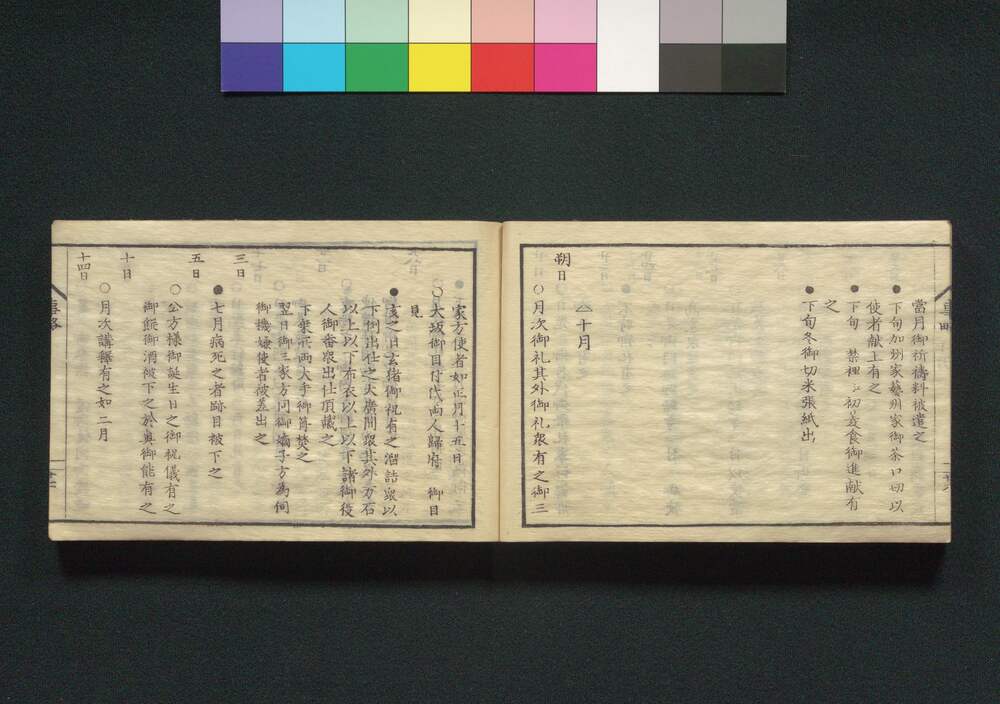 當月御祈祷料被遣之
●下旬加州家藝州家御茶口切以
使者献上有之
●下旬 禁裡江初菱食御進献有
之
●下旬冬御切米張紙出
△十月
朔日
○月次御礼其外御礼衆有之御三
家方使者如正月十五日
○大坂御目付代両人歸府 御目
見
●亥之日玄猪御祝有之溜詰衆以
下例出仕之大廣間衆其外万石
以上以下布衣以上以下諸御役
人御番衆出仕頂戴之
下乗所両大手御篝焚之
翌日御三家方同御嫡子方為伺
御機嫌使者被差出之
三日
●七月病死之者跡目被下之
五日
○公方様御誕生日之御祝儀有之
御餅御酒被下之於奥御能有之
十日
○月次講釋有之如二月
十四日